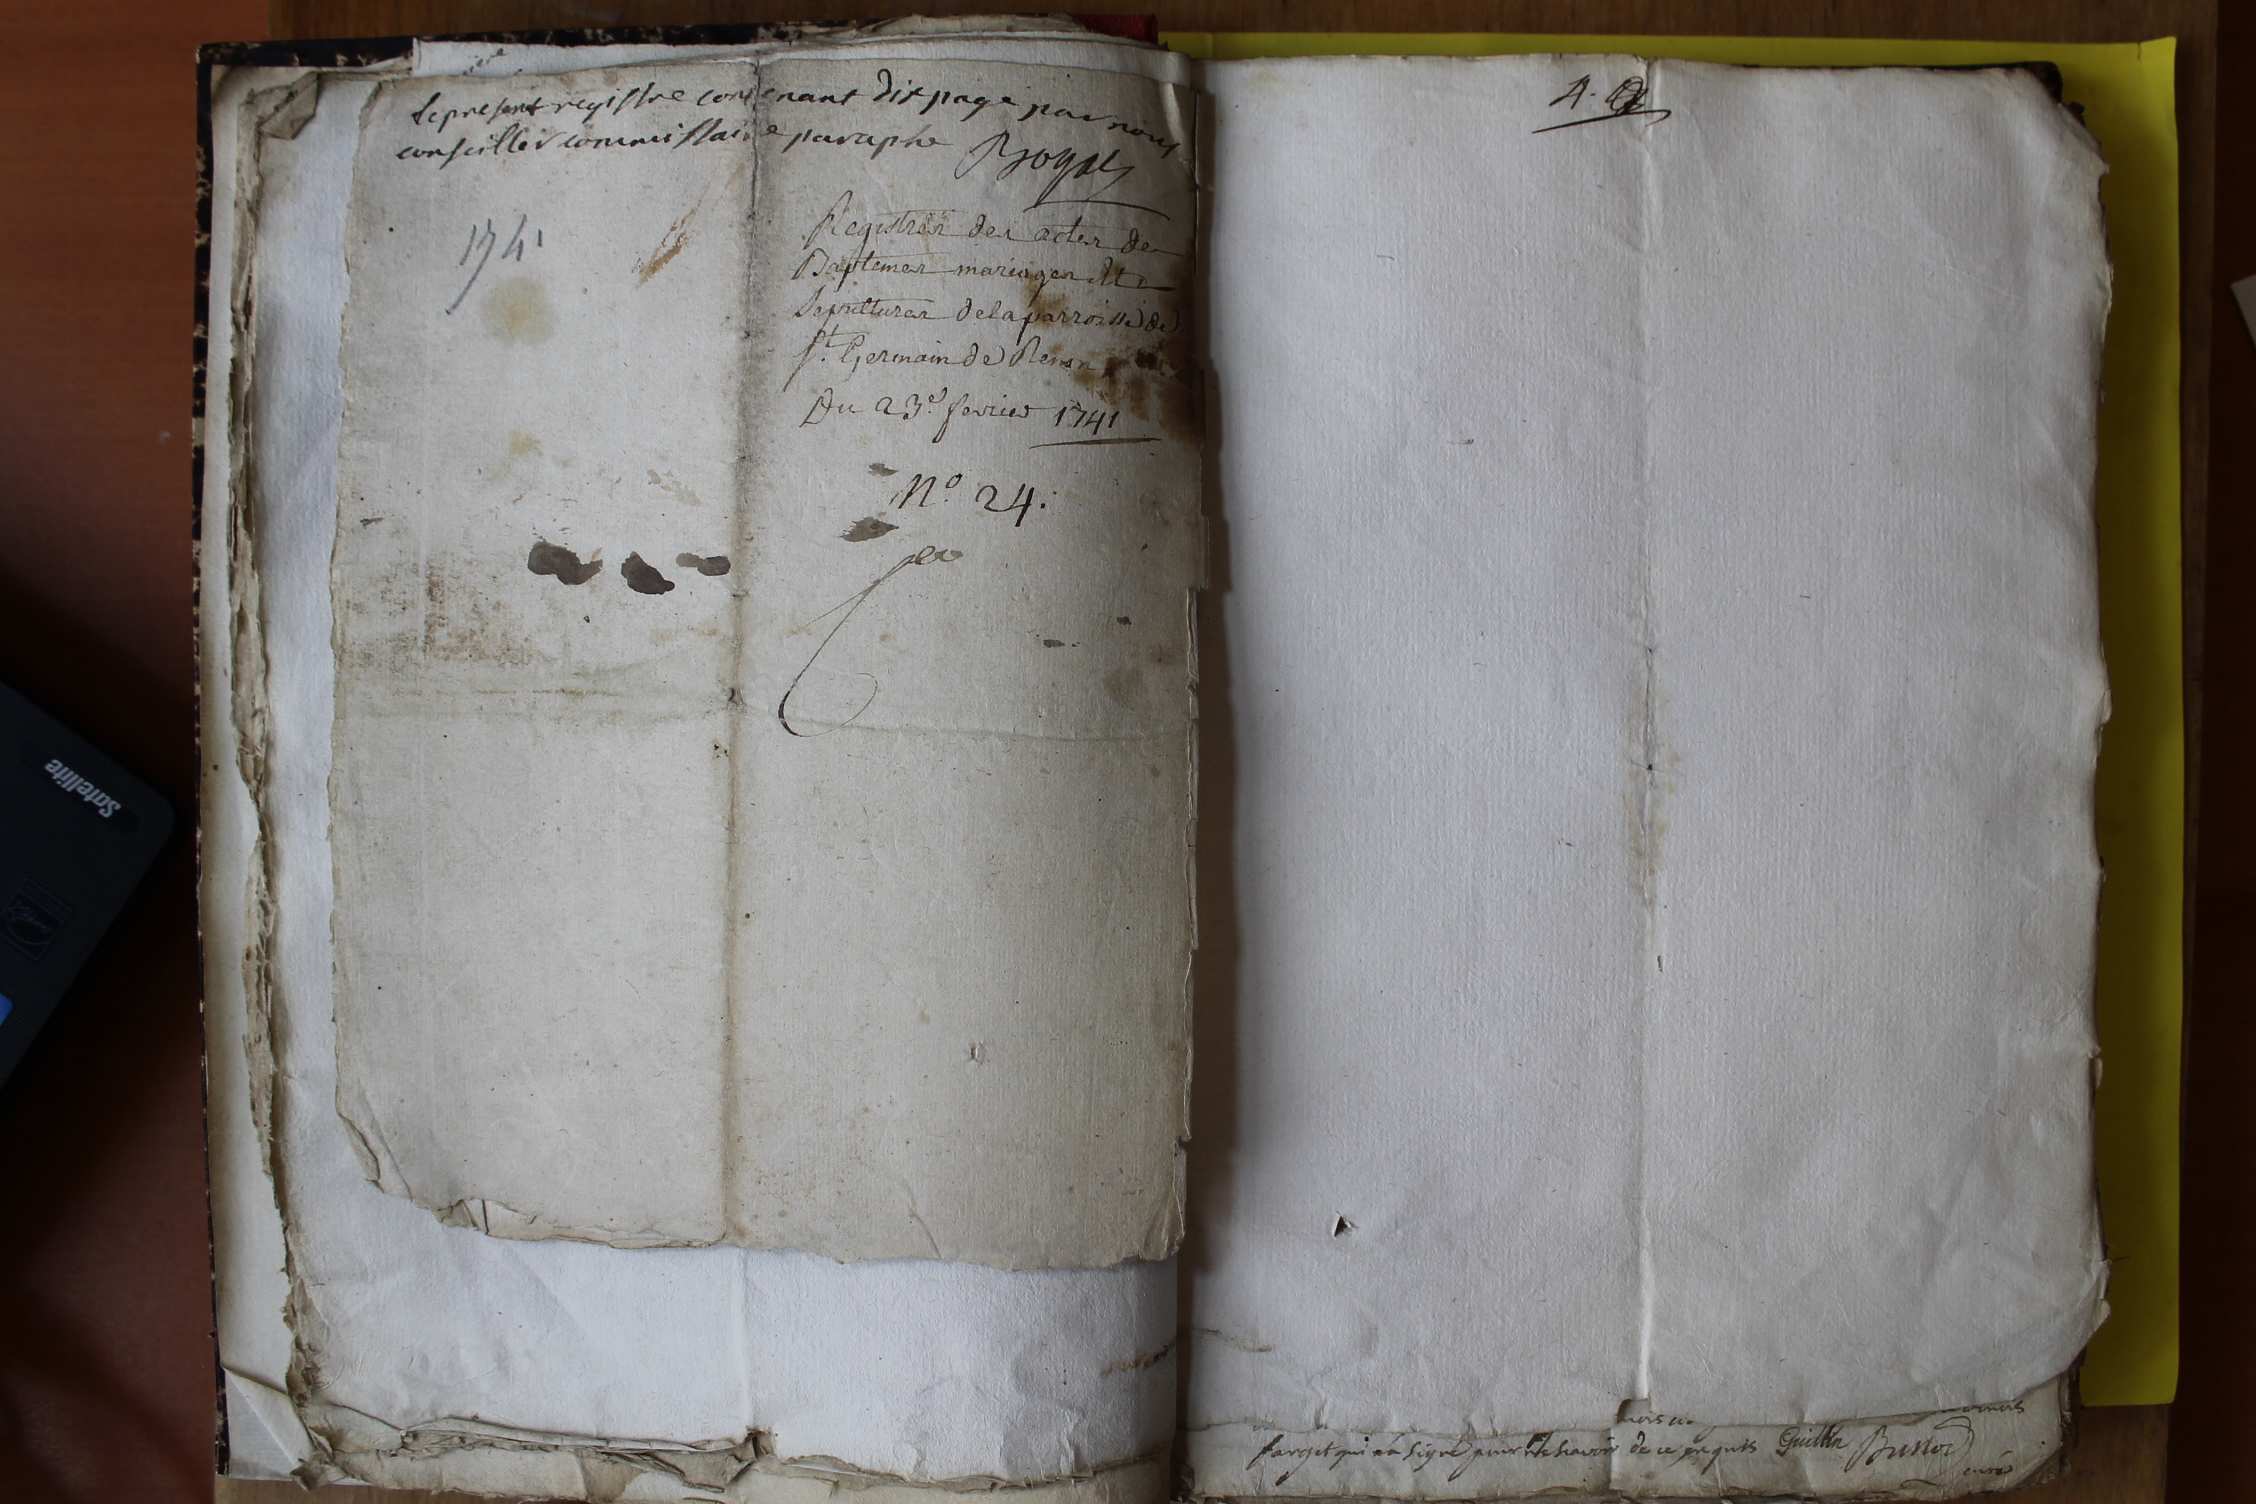 Le present registre contenant dix page par nous
conseiller commissaire paraphe Boyat
1741
Registres des actes de
Baptemes mariages et
Sepultures de la parroisse de
St. Germain de Renon
Du 23e fevrier 1741
No. 24.
4.
farget qui n'a signé pour ne sçavoir de ce enquis Guillin
curé
Satellite